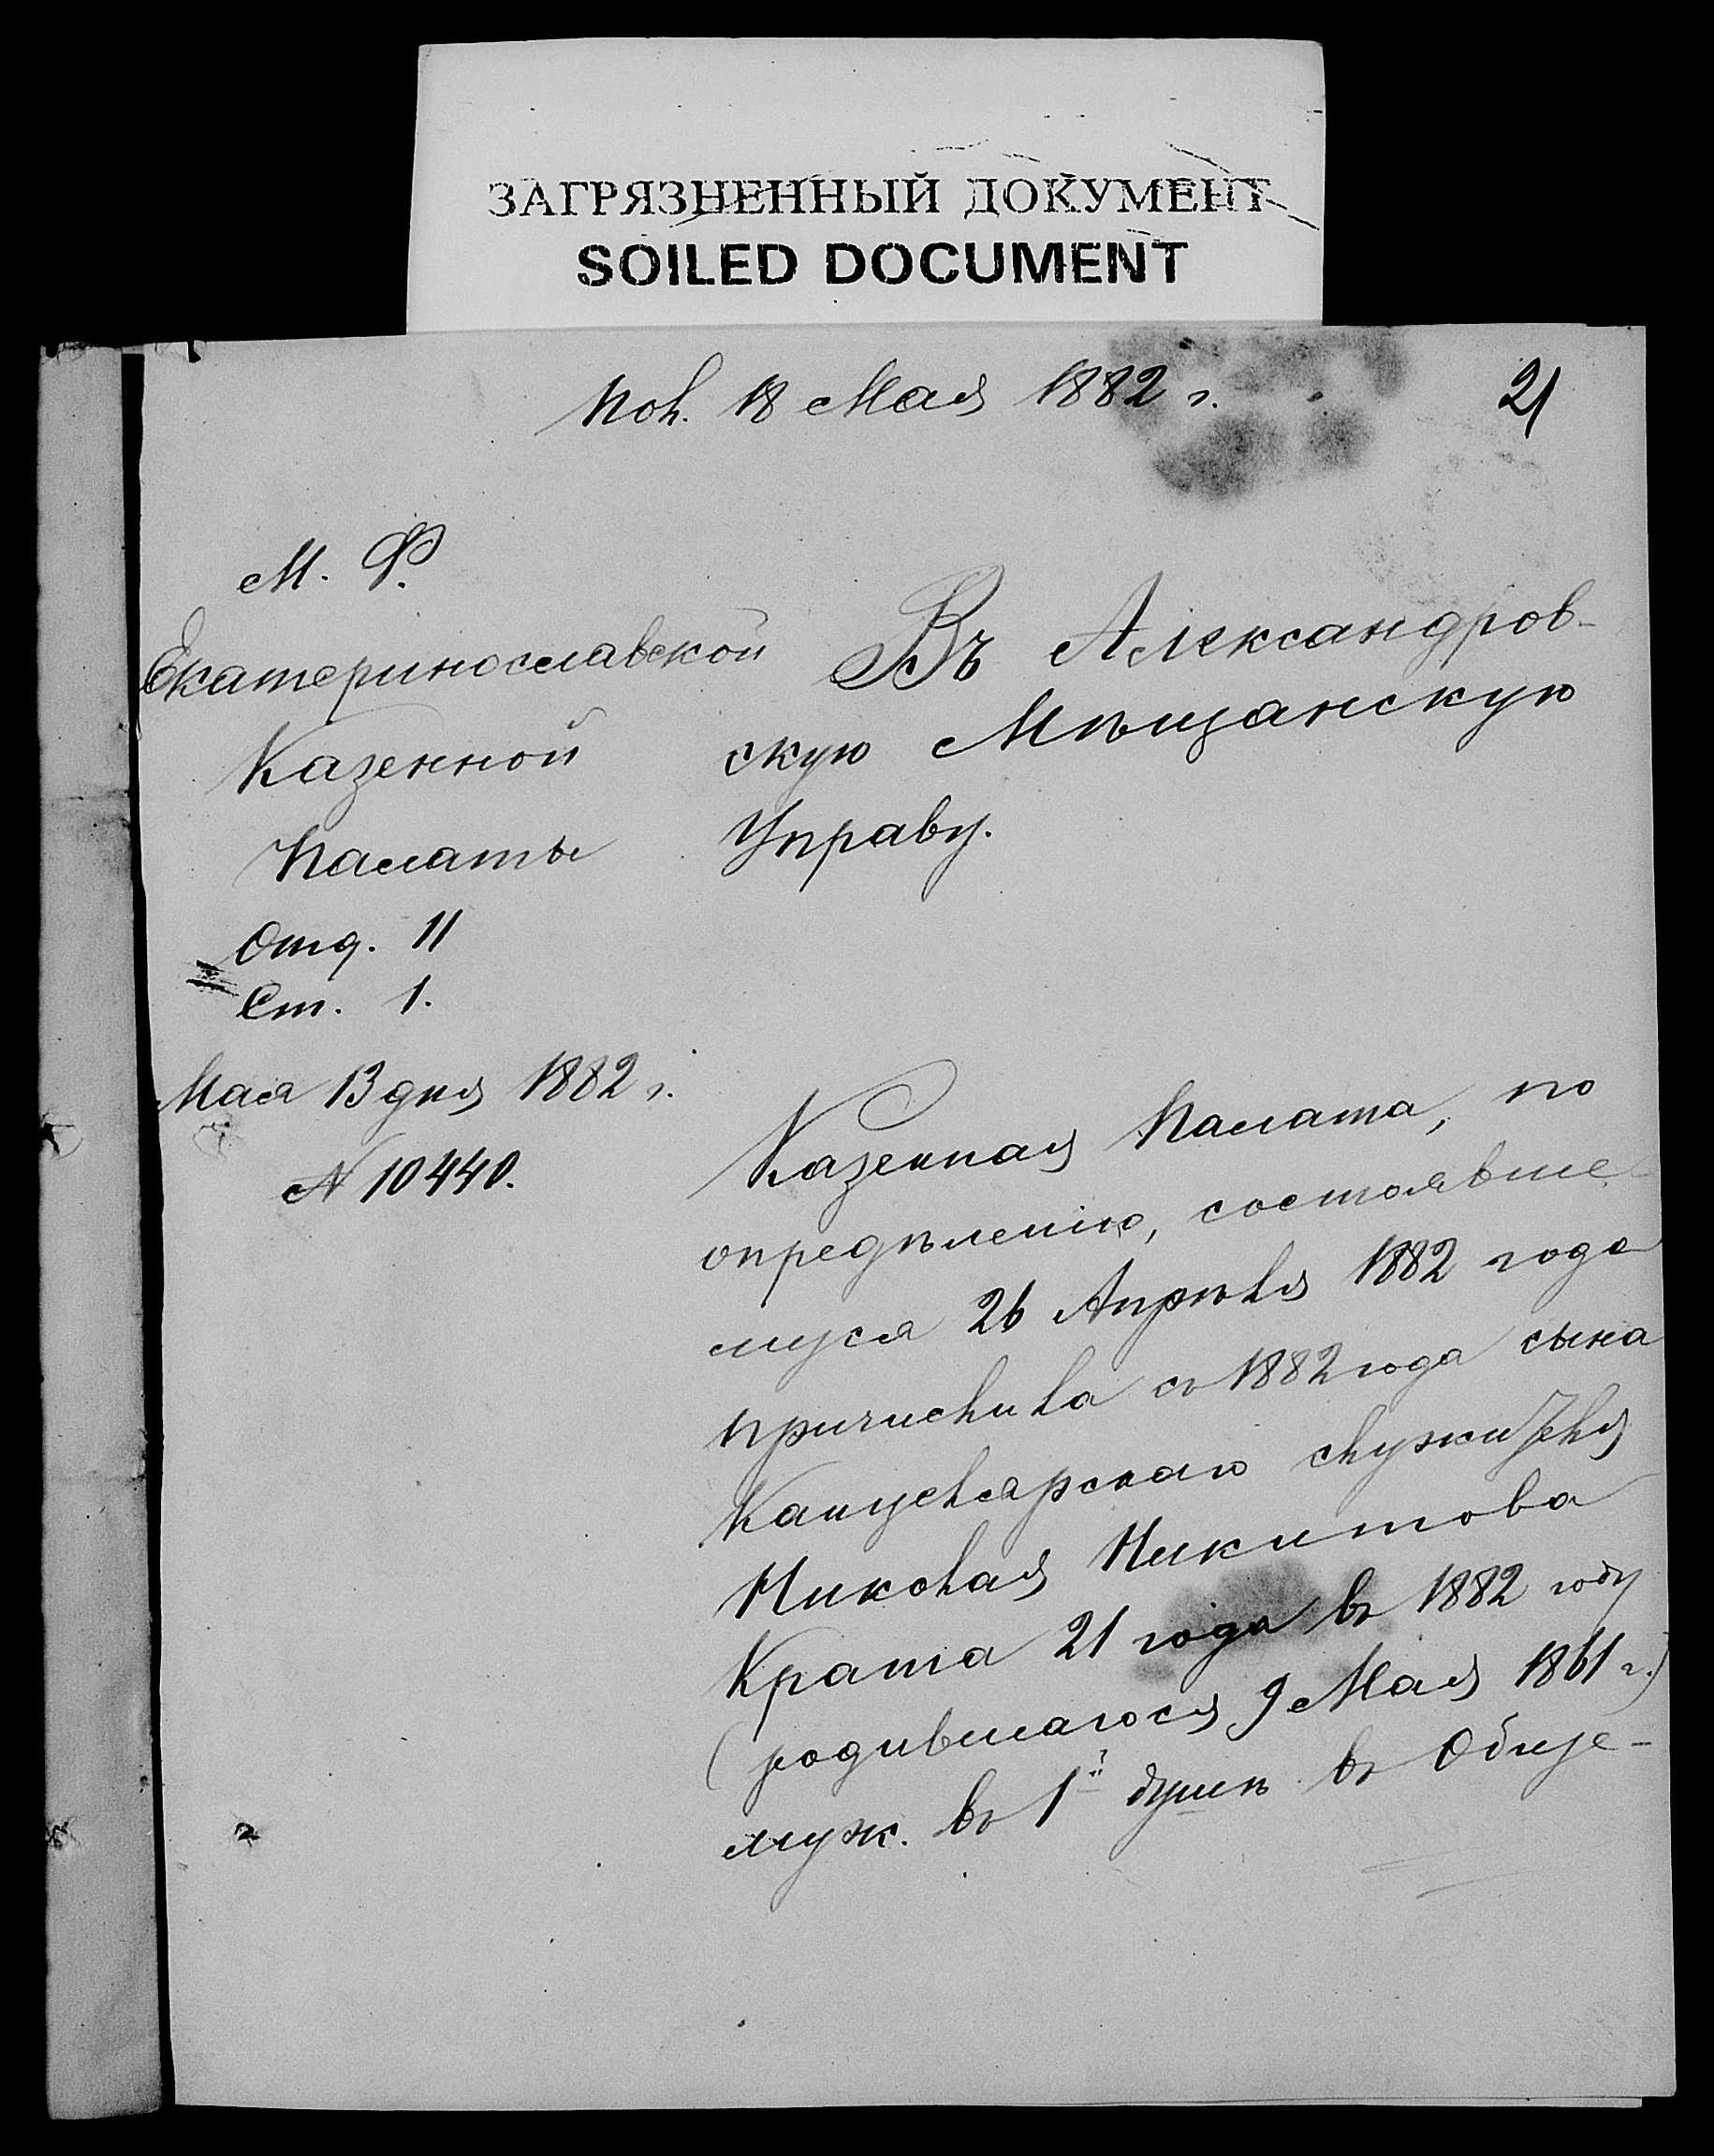 ЗАГРЯЗНЕННЫЙ ДОКУМЕНТ
SOILED DOCUMENT
Пол. 18 Мая 1882 г.
21
М. Ф.
Екатеринославской
Казенной
Палаты
Отд. II
Ст. 1.
Мая 13 дня 1882 г.
№ 10440.
Въ Александров-
скую Мѣщанскую
Управу.
Казенная Палата, по
опредѣленію, состоявше-
муся 26 Апрѣля 1882 года
причислила съ 1882 года сына
Канцелярскаго служителя
Николая Никитова
Крата 21 года въ 1882 году
(родившагося 9 Мая 1861 г.)
муж. въ 1й душѣ въ Обще-